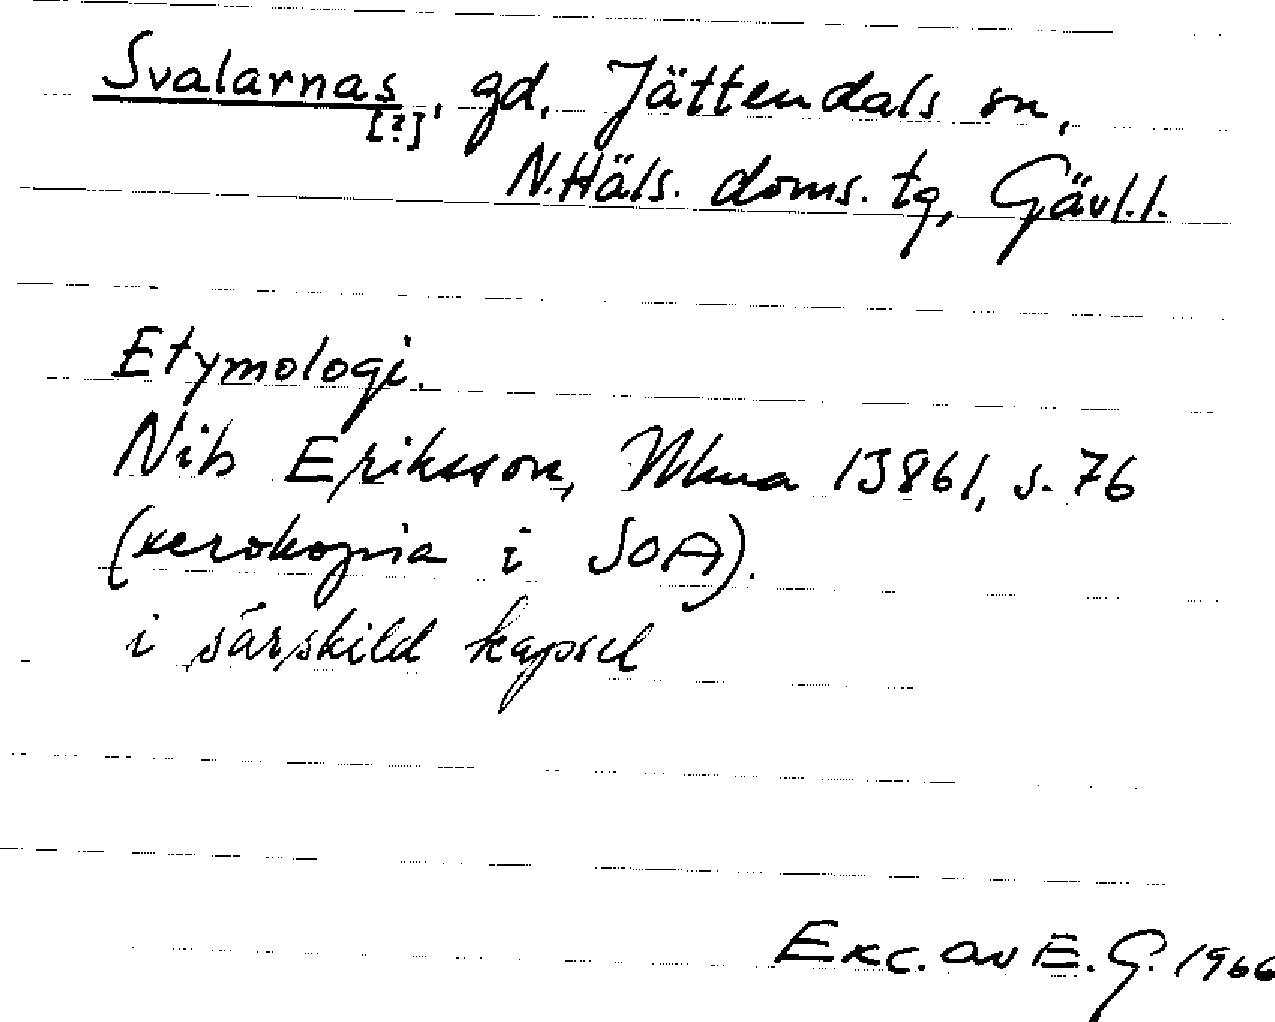 Svalarnas, gd. Jättendals sn,
[?]
N.Häls. doms. tg, Gävl.l.
Etymologi.
Nils Eriksson, Ukua 13861, s. 76
(xerokopia i SOA).
i särskild kapsel
Exc. av E.G. 1966